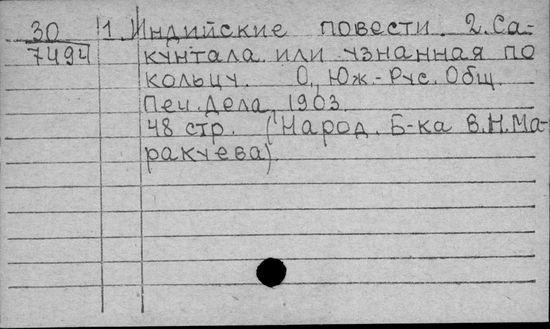 30 1. Индийские повести. 2. Са-
7494 кунтала или узнанная по
кольцу. О., Юж.-Рус. Общ.
Печ. Дела, 1903.
48 стр. (Народ. Б-ка В.Н.Ма-
ракуева).